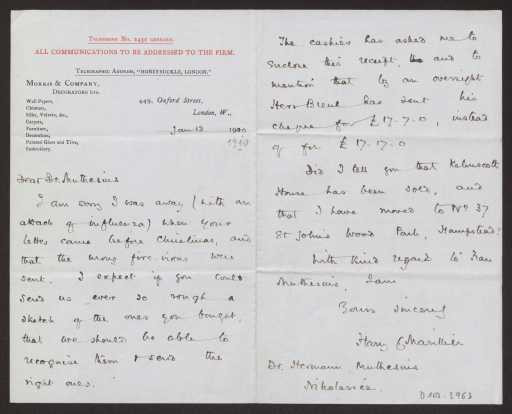 TELEPHONE No. 2435 GERRARD.
ALL COMMUNICATIONS TO BE ADDRESSED TO THE FIRM.
TELEGRAPHIC ADDRESS, "HONEYSUCKLE, LONDON."
MORRIS & COMPANY,
DECORATORS LTD.
Wall Papers,
Chintzes,
Silks, Velvets, &c.,
Carpets,
Furniture,
Decoration,
Painted Glass and Tiles,
Embroidery.
449, Oxford Street,
London, W.,
Jan 13 1900
1910
Dear Dr. Muthesius
I am sorry I was away (with an
attack of influenza) when your
letter came before Christmas, and
that the wrong fire-irons were
sent. I expect if you could
send us ever so rough a
sketch of the ones you bought,
that we should be able to
recognise them & send the
right ones.
The cashier has asked me to
enclose this receipt, and to
mention that by an oversight
Herr Breul has sent his
cheque for £17.7.0, instead
of for £17.17.0
Did I tell you that Kelmscott
House has been sold, and
that I have moved to No 37
St John's Wood Park, Hampstead?
With kind regards to Frau
Muthesius, I am
Yours sincerely
Harry C Marillier
Dr. Hermann Muthesius
Nikolassee
D 102-2963